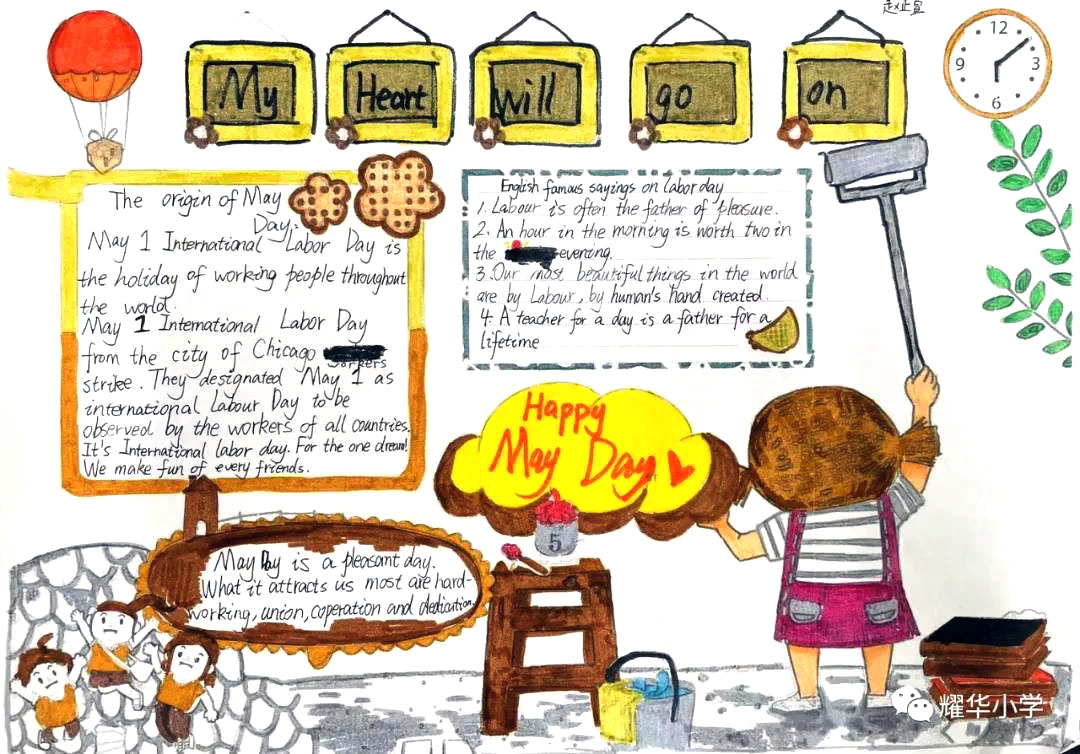 赵正宣
My Heart will go on
12
3
6
9
The origin of May
Day.
May 1 International Labor Day is
the holiday of working people throughout
the world.
May 1 International Labor Day
from the city of Chicago
workers
strike. They designated May 1 as
international Labour Day to be
observed by the workers of all countries.
It's International labor day. For the one dream!
We make fun of every friends.
English famous sayings on labor day
1. Labour is often the father of pleasure.
2. An hour in the morning is worth two in
the evening.
3. Our most beautiful things in the world
are by Labour, by human's hand created.
4. A teacher for a day is a father for a
lifetime
Happy
May Day
5
May Day is a pleasant day.
What it attracts us most are hard-
working, union, coperation and dedication.
耀华小学